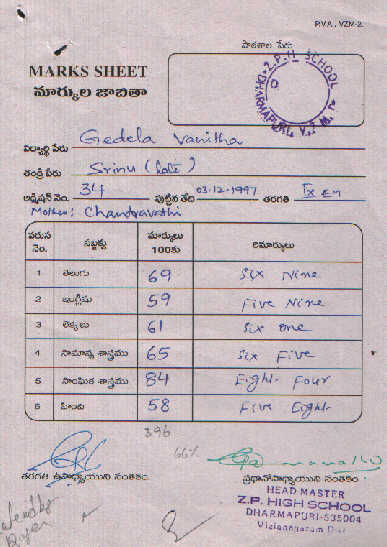 P.V.A., VZM-2.
పాఠశాల పేరు
MARKS SHEET
మార్కుల జాబితా
Z.P.H. SCHOOL
DHARMAPURI, V.Z.M.
విద్యార్థి పేరు Gedela Vanitha
తండ్రి పేరు Srinu (Late)
అడ్మిషన్ నెం. 34 పుట్టిన తేది 03-12-1997 తరగతి IX EM
Mother: Chandravathi
వరుస నెం. సబ్జక్టు మార్కులు 100కు రిమార్కులు
1 తెలుగు 69 Six Nine
2 ఇంగ్లీషు 59 Five Nine
3 లెక్కలు 61 Six one
4 సామాన్య శాస్త్రము 65 Six Five
5 సాంఘిక శాస్త్రము 84 Eight Four
6 హిందీ 58 Five Eight
396
66%
తరగతి ఉపాధ్యాయుని సంతకం.
ప్రధానోపాధ్యాయుని సంతకం
HEAD MASTER
Z.P. HIGH SCHOOL
DHARMAPURI-535004
Vizianagaram Dist